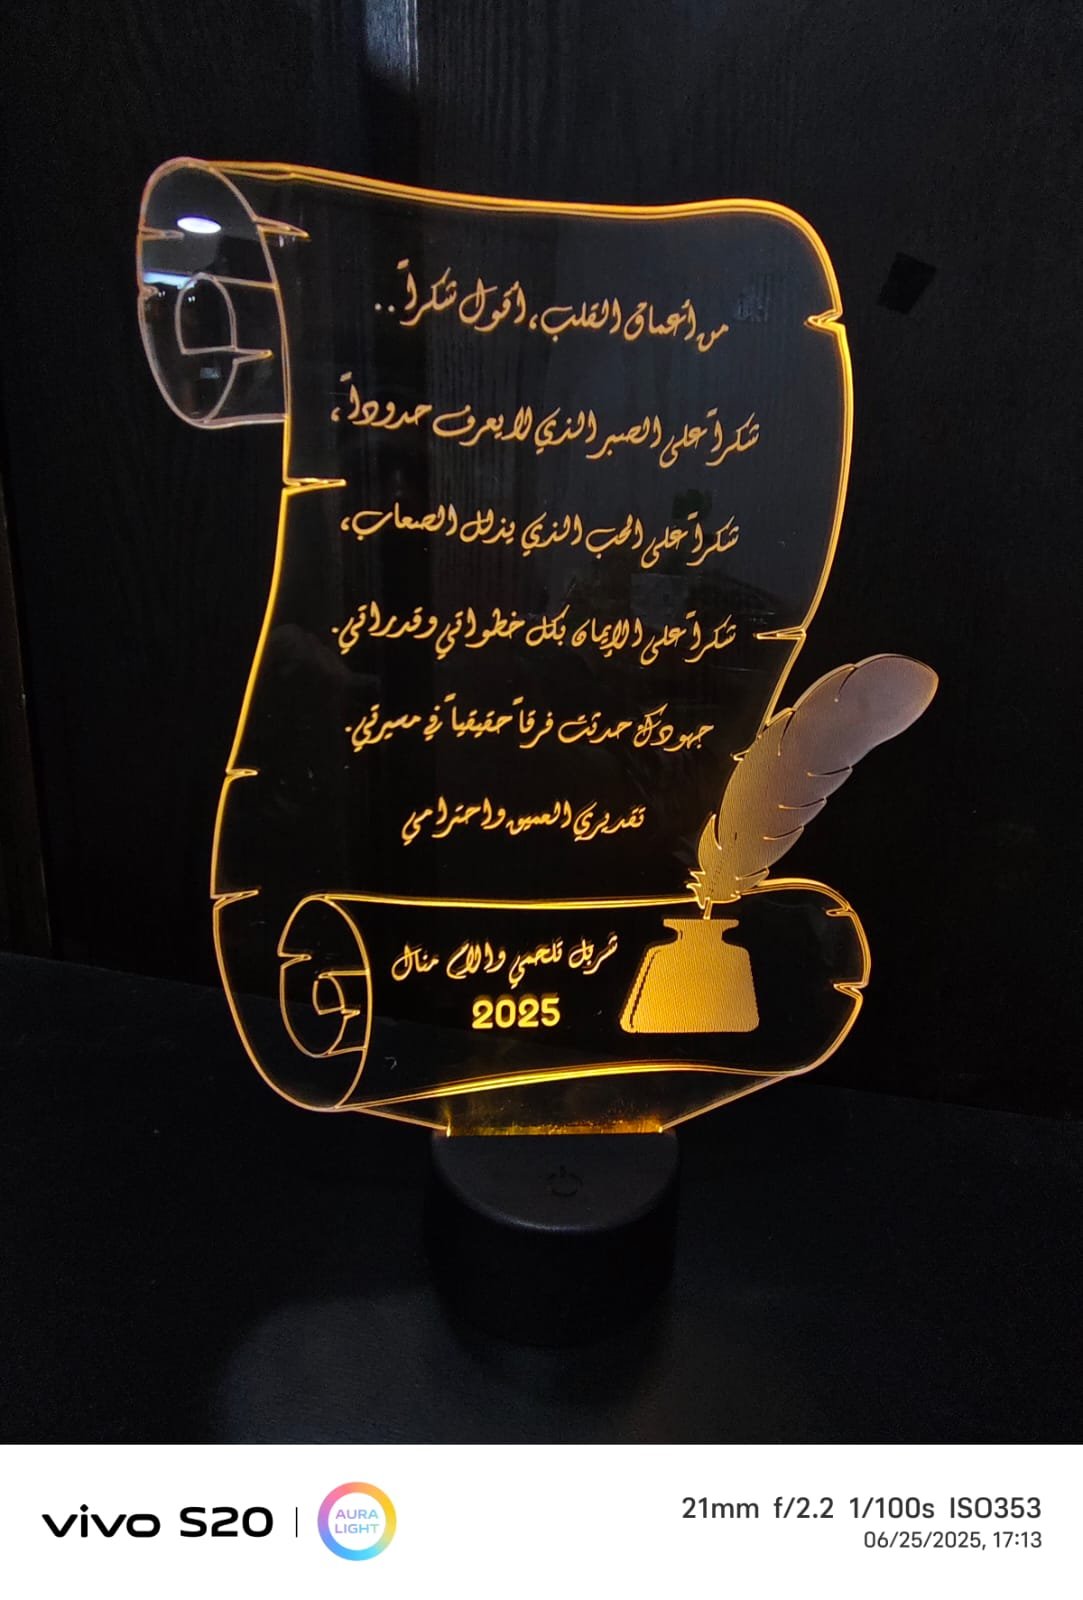 من أعماق القلب، أقول شكراً..
شكراً على الصبر الذي لا يعرف حدوداً،
شكراً على الحب الذي يذلل الصعاب،
شكراً على الإيمان بكل خطواتي وقدراتي.
جهودك حدثت فرقاً حقيقياً في مسيرتي.
تقديري العميق واحترامي
شربل تلحمي والأم منال
2025
vivo S20
AURA
LIGHT
21mm f/2.2 1/100s ISO353
06/25/2025, 17:13